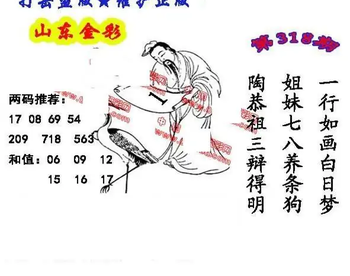 山东金彩
第318期
两码推荐:
17 08 69 54
209 718 563
和值: 06 09 12
15 16 17
1
一行如画白日梦
姐妹七八养条狗
陶恭祖三辩得明